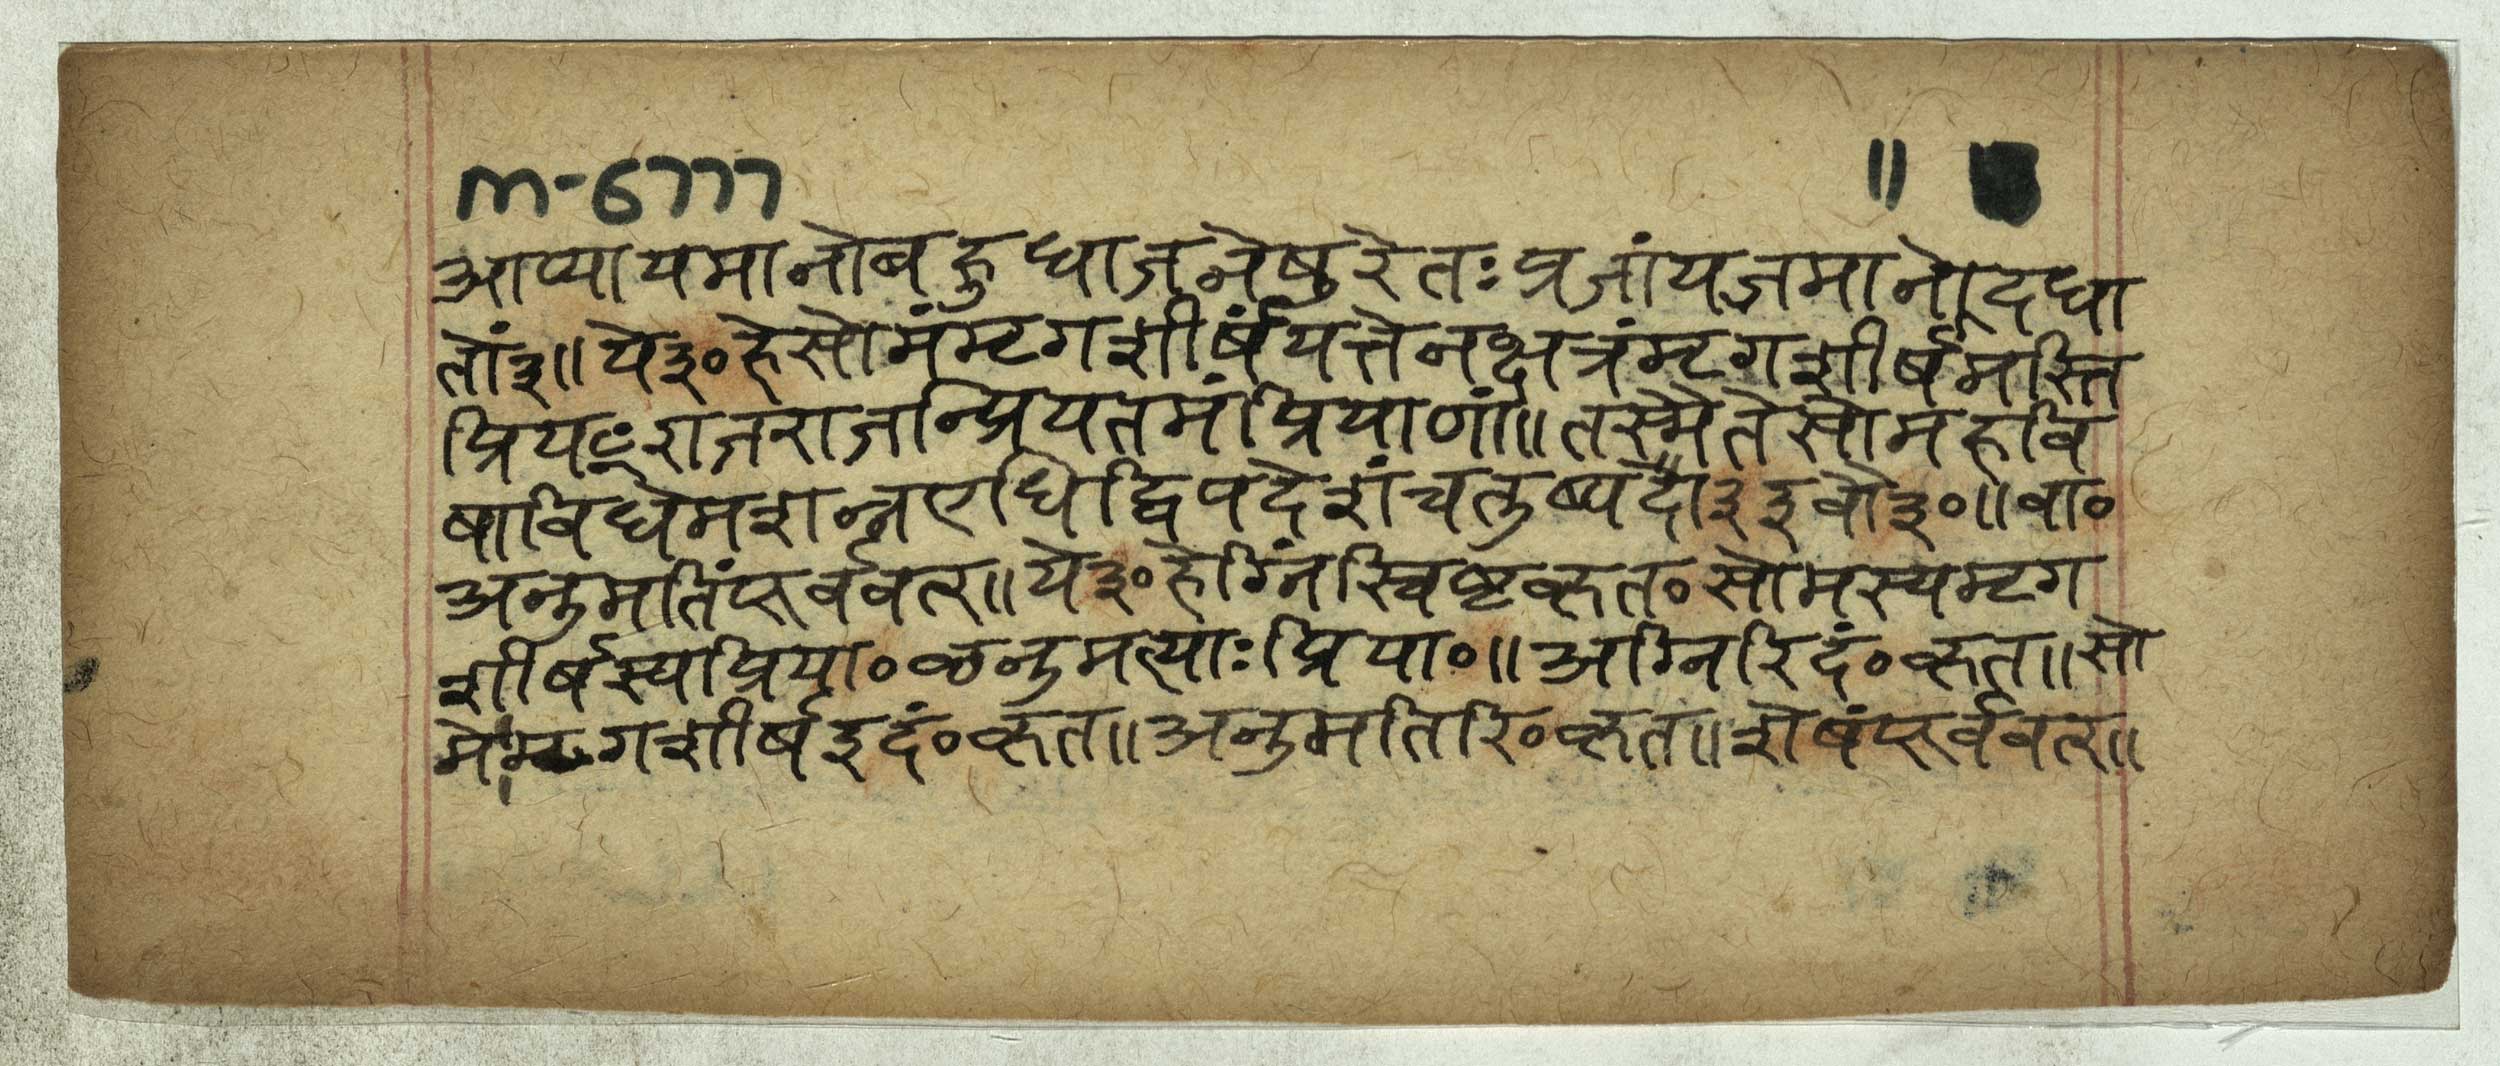 m-6777 ॥
आप्यायमानोबहुधाजनेषुरेतःप्रजांयजमानोदधा
तों३॥ये३०हेसोमंमृगशीर्षंयत्तेनक्षत्रंमृगशीर्षमस्ति
प्रियꣳराजराजन्प्रियतमंप्रियाणां॥तस्मैतेसोमहवि
षाविधेमशन्नएधिद्विपदेशंचतुष्पदौ३इवौ३०॥वा०
अनुमतिंपूर्ववत्॥ये३०हेग्निंस्विष्टकृत०सोमस्यमृग
शीर्षस्यप्रिया०ऌनुमत्याःप्रिया०॥अग्निरिदं०कृत॥सो
मोमृगशीर्षइदं०कृत॥अनुमतिरि०कृत॥शेषंपूर्ववत्॥